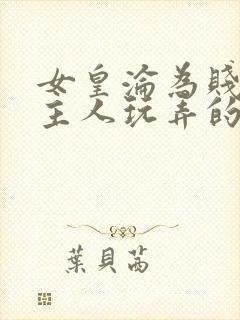 女皇淪為賤
主人玩弄的
葉貝茜